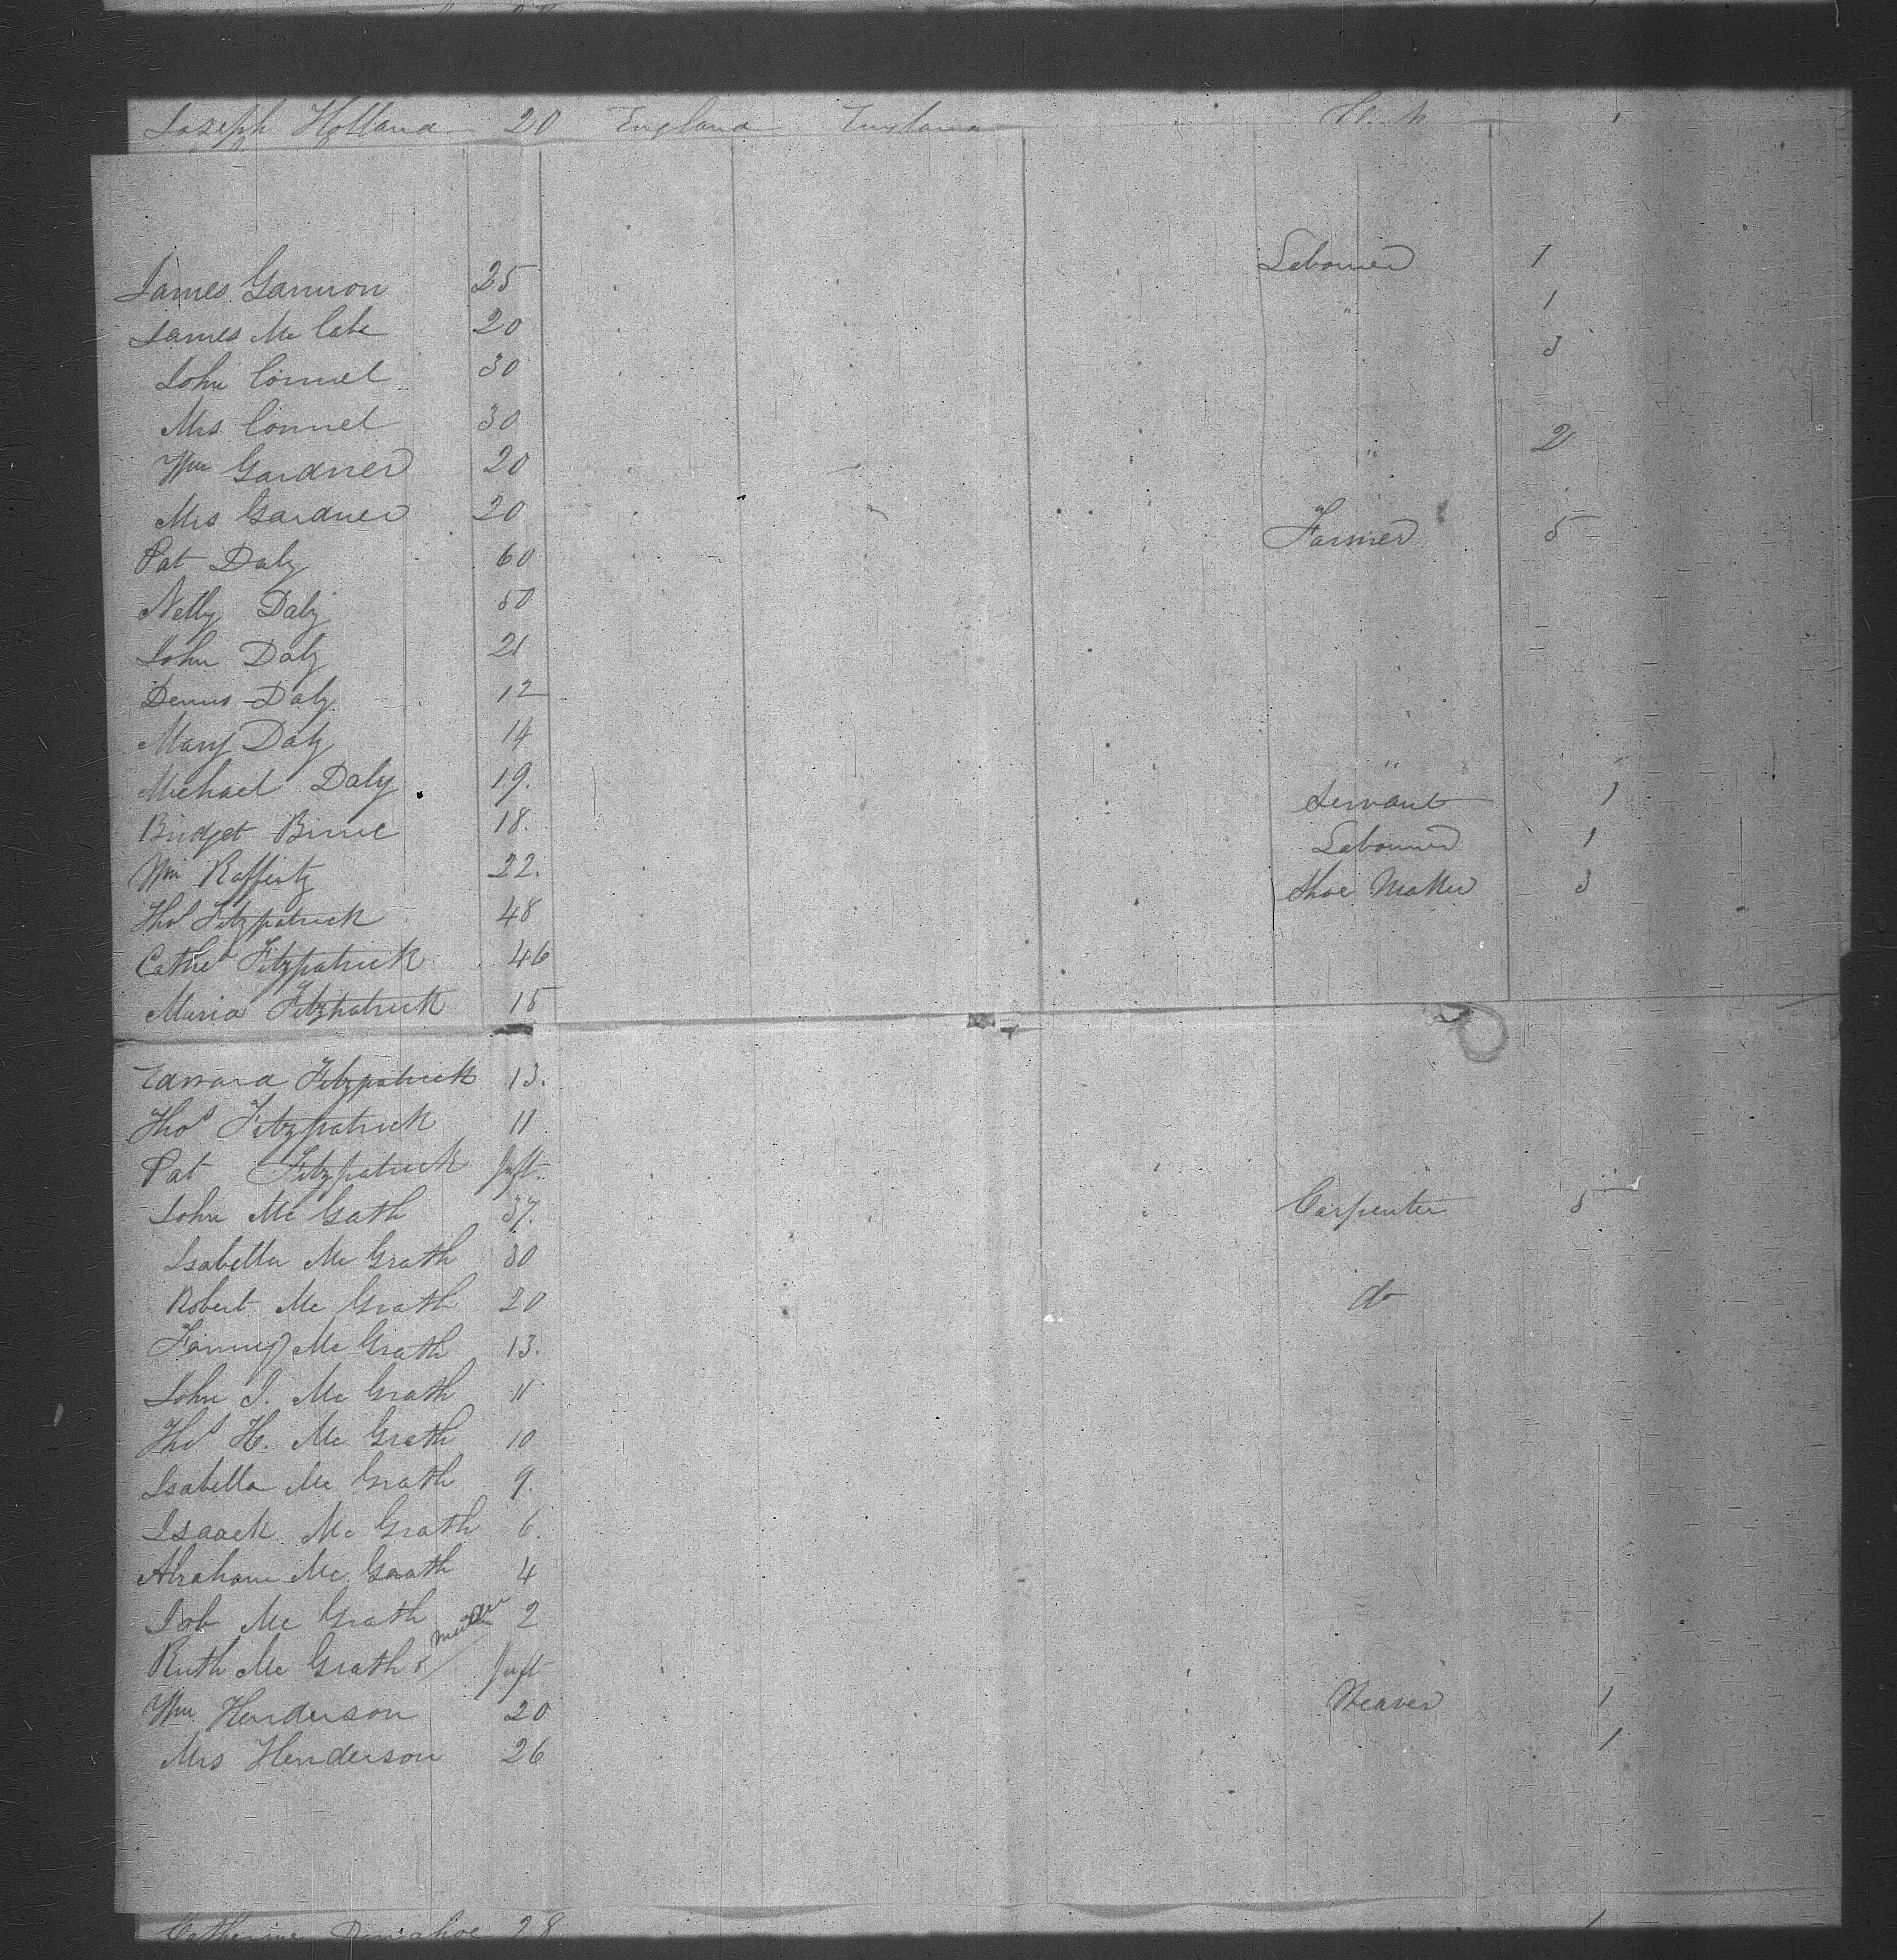 Joseph Holland 20 England England
James Gannon 25 Labourer 1
James Mc Cabe 20 " 1
John Connel 30 3
Mrs Connel 30
Wm Gardner 20 " 2
Mrs Gardner 20
Pat Daly 60 Farmer 5
Nelly Daly 50
John Daly 21
Dennis Daly 12
Mary Daly 14
Michael Daly 19. "
Bridget Birne 18. Servant 1
Wm Rafferty 22. Labourer 1
Thos Fitzpatrick 48 Shoe Maker 3
Cathe Fitzpatrick 46
Maria Fitzpatrick 15
Edward Fitzpatrick 13.
Thos Fitzpatrick 11
Pat Fitzpatrick Inft.
John Mc Gath 37. Carpenter 5
Isabella Mc Grath 30
Robert Mc Grath 20 do
Fanny Mc Grath 13.
John J. Mc Grath 11
Thos H. Mc Grath 10
Isabella Mc Grath 9.
Isaack Mc Grath 6.
Abraham Mc Grath 4
Job Mc Grath 2
Ruth Mc Grath Inft
Wm Henderson 20 Weaver 1
Mrs Henderson 26 1
Catherine Donahoe 28 1